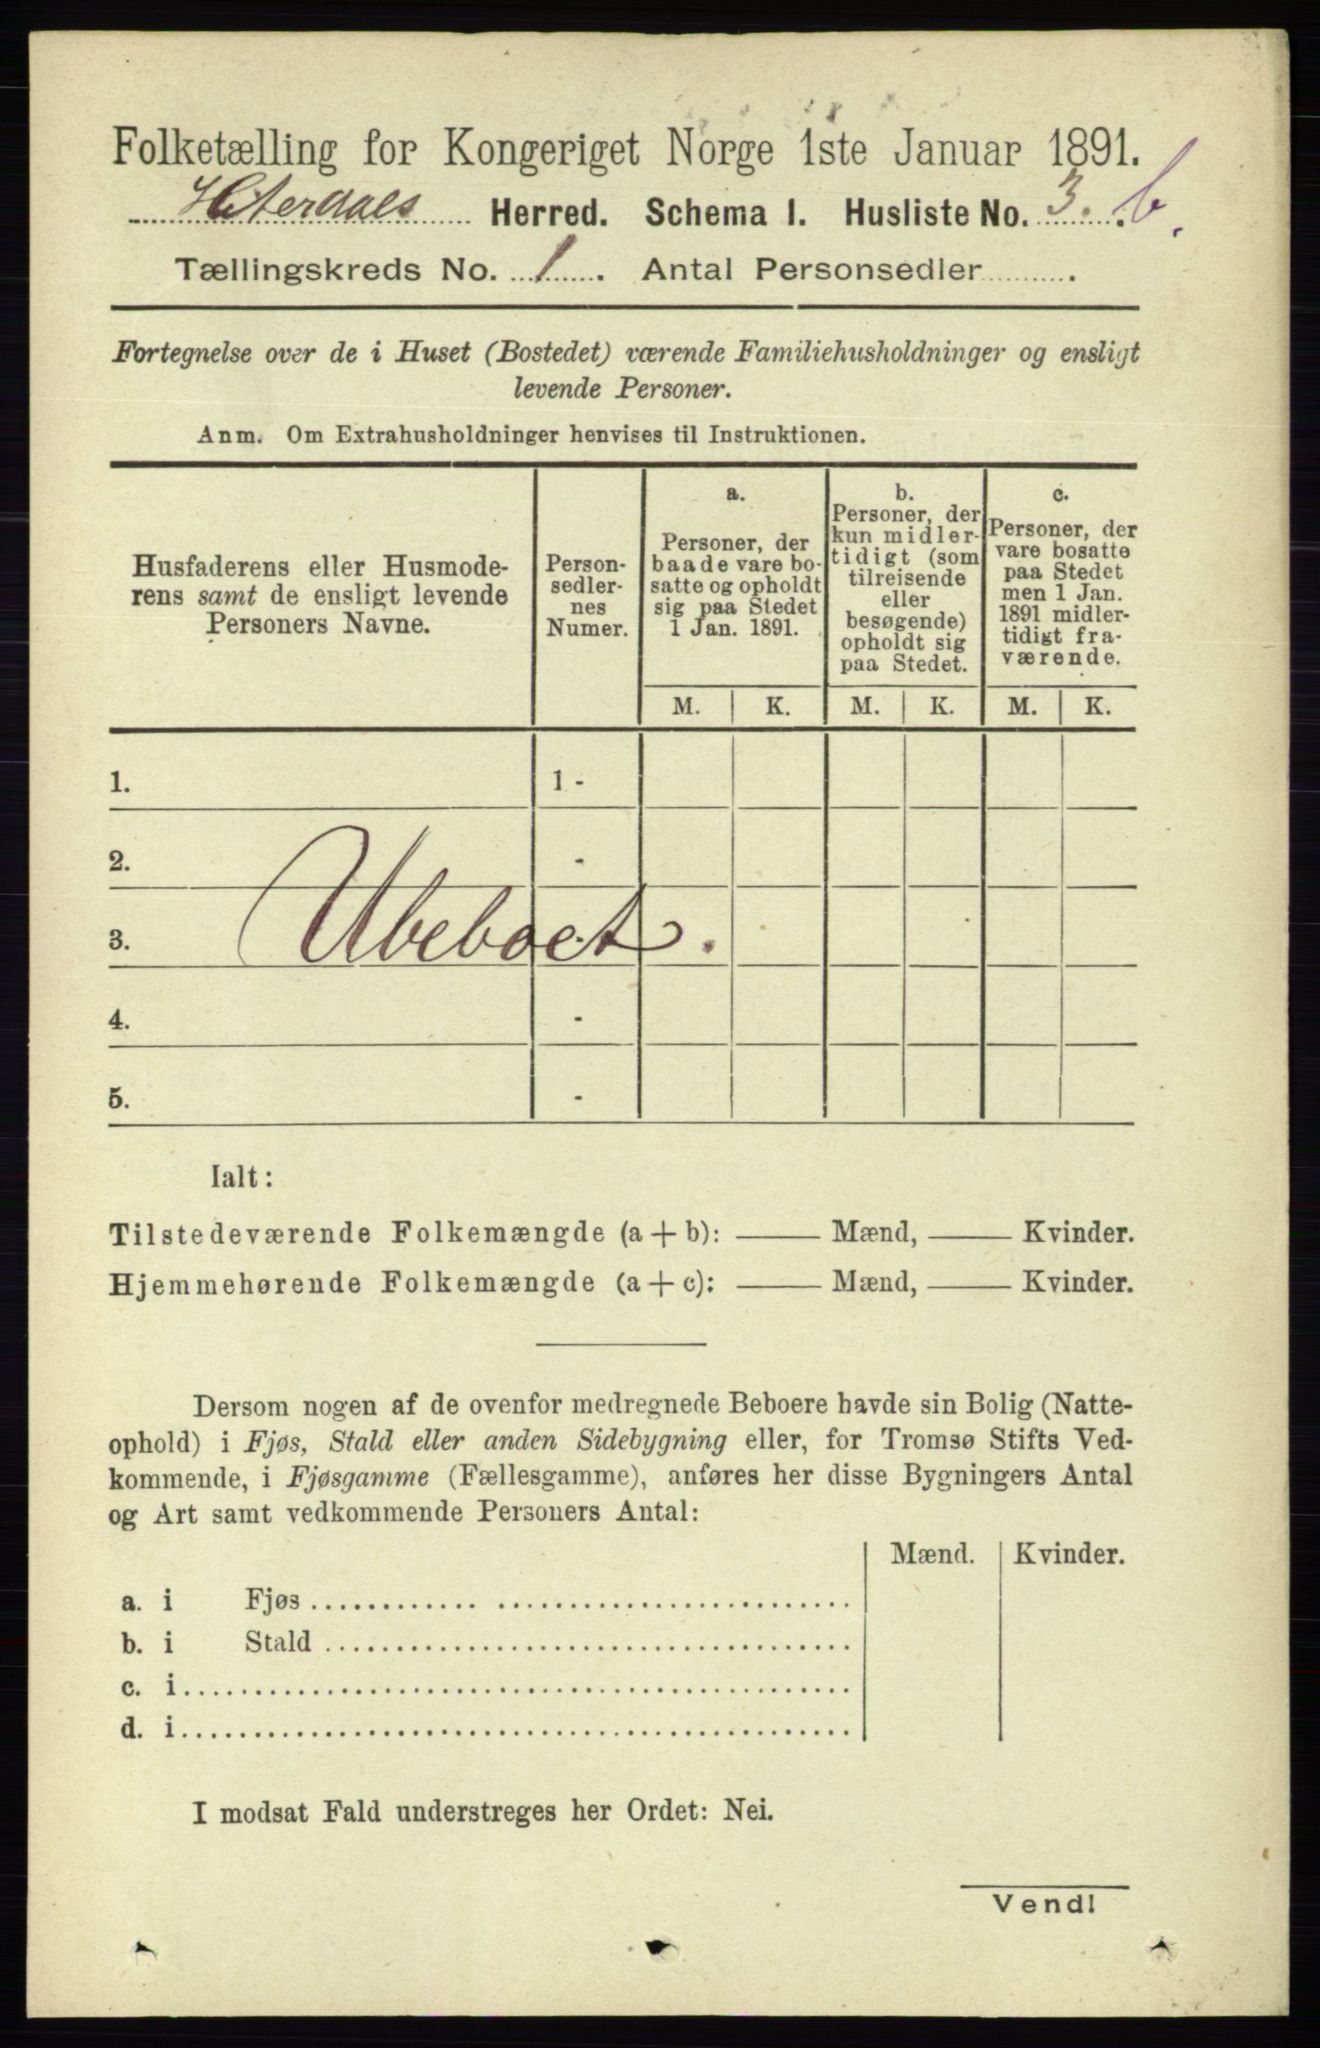 Folketælling for Kongeriget Norge 1ste Januar 1891.
Hiterdals Herred. Schema I. Husliste No. 3. b.
Tællingskreds No. 1. Antal Personsedler .
Fortegnelse over de i Huset (Bostedet) værende Familiehusholdninger og ensligt
levende Personer.
Anm. Om Extrahusholdninger henvises til Instruktionen.
Husfaderens eller Husmode-
rens samt de ensligt levende
Personers Navne.
Person-
sedler-
nes
Numer.
a.
Personer, der
baade vare bo-
satte og opholdt
sig paa Stedet
1 Jan. 1891.
b.
Personer, der
kun midler-
tidigt (som
tilreisende
eller
besøgende)
opholdt sig
paa Stedet.
c.
Personer, der
vare bosatte
paa Stedet
men 1 Jan.
1891 midler-
tidigt fra-
værende.
M. K. M. K. M. K.
1. 1 -
2. -
3. Ubeboet.
4. -
5. -
Ialt:
Tilstedeværende Folkemængde (a + b): —— Mænd, —— Kvinder.
Hjemmehørende Folkemængde (a + c): —— Mænd, —— Kvinder.
Dersom nogen af de ovenfor medregnede Beboere havde sin Bolig (Natte-
ophold) i Fjøs, Stald eller anden Sidebygning eller, for Tromsø Stifts Ved-
kommende, i Fjøsgamme (Fællesgamme), anføres her disse Bygningers Antal
og Art samt vedkommende Personers Antal:
Mænd. Kvinder.
a. i Fjøs
b. i Stald
c. i
d. i
I modsat Fald understreges her Ordet: Nei.
Vend!